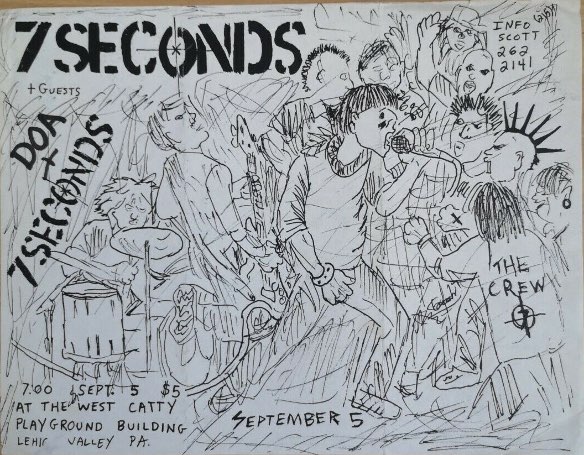 7 SECONDS
+ GUESTS
INFO
SCOTT
262
2141
DOA
+
7 SECONDS
THE
CREW
7:00 SEPT. 5 $5
AT THE WEST CATTY
PLAYGROUND BUILDING
LEHIG VALLEY PA.
SEPTEMBER 5